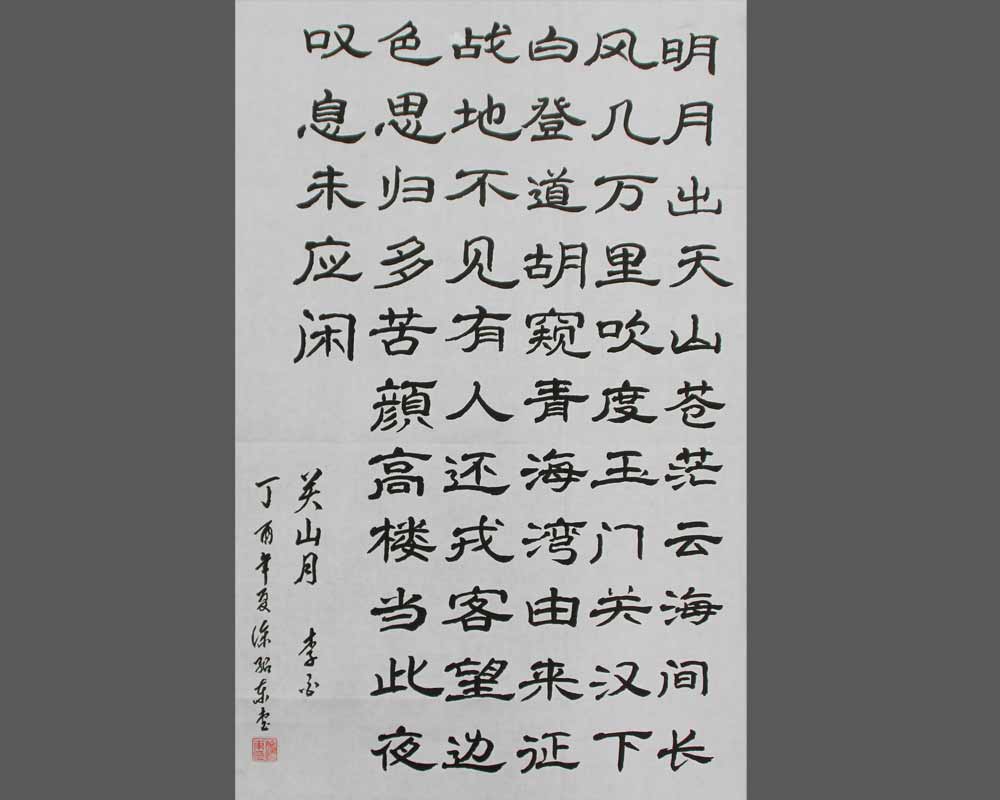 明月出天山苍茫云海间长
风几万里吹度玉门关汉下
白登道胡窥青海湾由来征
战地不见有人还戍客望边
色思归多苦顔高楼当此夜
叹息未应闲
关山月 李白
丁酉年夏徐绍东书